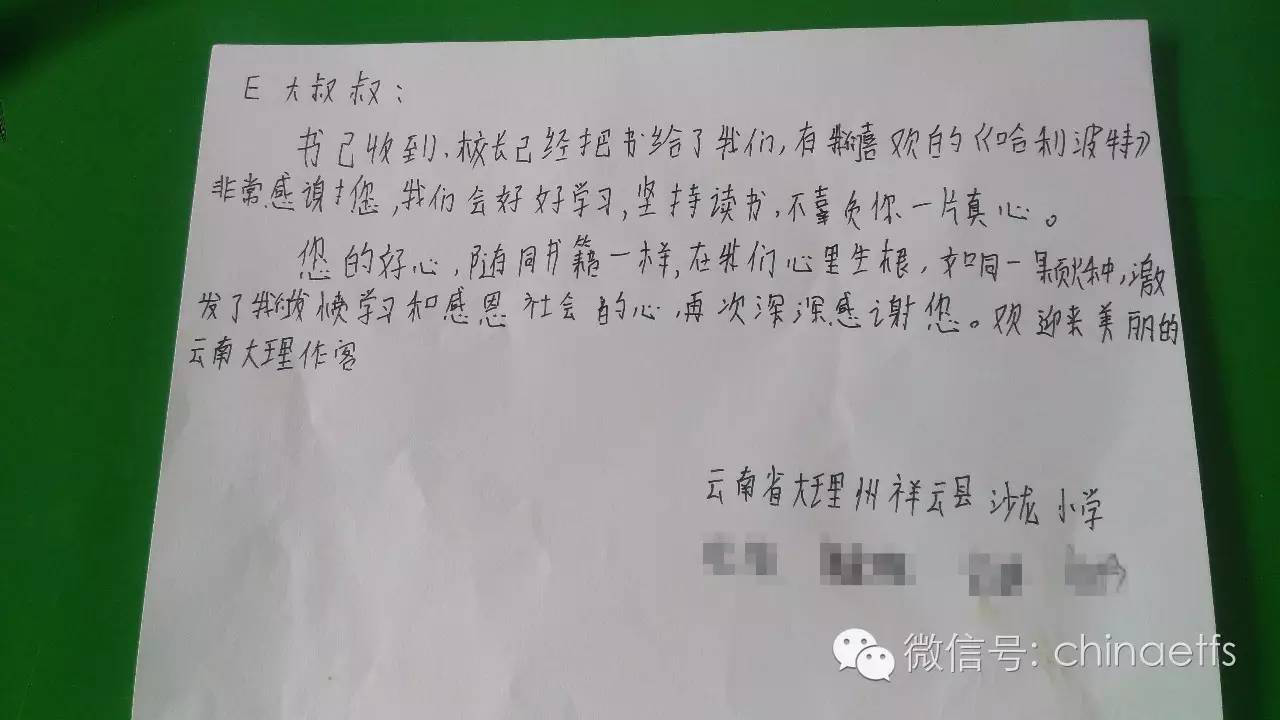 E大叔叔：
书已收到、校长已经把书给了我们，有我们喜欢的《哈利波特》
非常感谢您，我们会好好学习，坚持读书，不辜负你一片真心。
您的好心，随同书籍一样，在我们心里生根，如同一颗火种，激
发了我们发愤学习和感恩社会的心，再次深深感谢您。欢迎来美丽的
云南大理作客
云南省大理州祥云县沙龙小学
微信号: chinaetfs